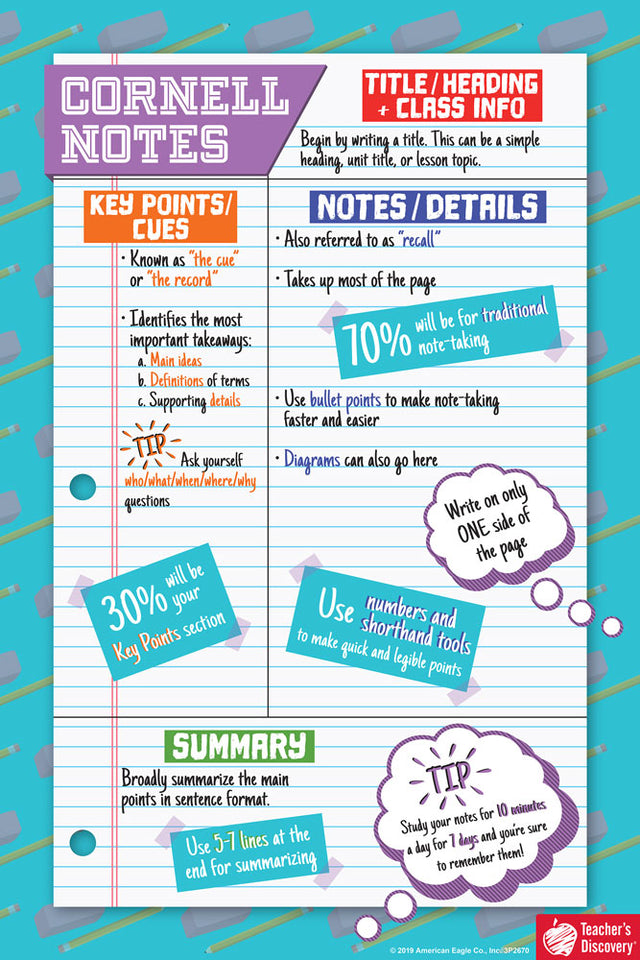 CORNELL
NOTES
TITLE/HEADING
+ CLASS INFO
Begin by writing a title. This can be a simple
heading, unit title, or lesson topic.
KEY POINTS/
CUES
• Known as "the cue"
or "the record"
• Identifies the most
important takeaways:
a. Main ideas
b. Definitions of terms
c. Supporting details
TIP
Ask yourself
who/what/when/where/why
questions
30% will be
your
Key Points section
NOTES/DETAILS
• Also referred to as "recall"
• Takes up most of the page
70% will be for traditional
note-taking
• Use bullet points to make note-taking
faster and easier
• Diagrams can also go here
Write on only
ONE side of
the page
Use numbers and
shorthand tools
to make quick and legible points
SUMMARY
Broadly summarize the main
points in sentence format.
Use 5-7 lines at the
end for summarizing
TIP
Study your notes for 10 minutes
a day for 7 days and you're sure
to remember them!
© 2019 American Eagle Co., Inc. 3P2670
Teacher's
Discovery®